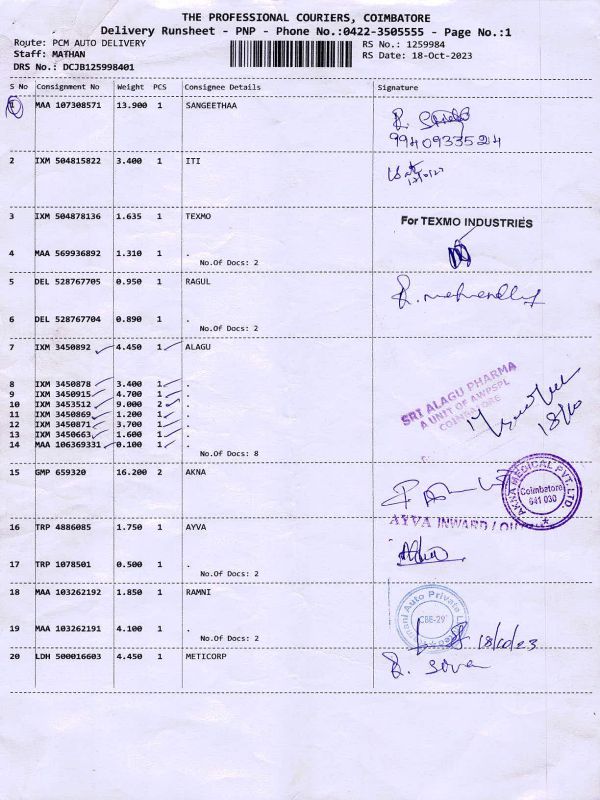 THE PROFESSIONAL COURIERS, COIMBATORE
Delivery Runsheet - PNP - Phone No.:0422-3505555 - Page No.:1
Route: PCM AUTO DELIVERY RS No.: 1259984
Staff: MATHAN RS Date: 18-Oct-2023
DRS No.: DCJB125998401
S No Consignment No Weight PCS Consignee Details Signature
1 MAA 107308571 13.900 1 SANGEETHAA
9940933524
2 IXM 504815822 3.400 1 ITI
3 IXM 504878136 1.635 1 TEXMO For TEXMO INDUSTRIES
4 MAA 569936892 1.310 1 .
No.Of Docs: 2
5 DEL 528767705 0.950 1 RAGUL
6 DEL 528767704 0.890 1 .
No.Of Docs: 2
7 IXM 3450892 4.450 1 ALAGU
SRI ALAGU PHARMA
A UNIT OF AWPSPL
COIMBATORE
18/10
8 IXM 3450878 3.400 1 .
9 IXM 3450915 4.700 1 .
10 IXM 3453512 9.000 2 .
11 IXM 3450869 1.200 1 .
12 IXM 3450871 3.700 1 .
13 IXM 3450663 1.600 1 .
14 MAA 106369331 0.100 1 .
No.Of Docs: 8
15 GMP 659320 16.200 2 AKNA
AKNA MEDICAL PVT. LTD.
Coimbatore
641 030
AYVA INWARD /
16 TRP 4886085 1.750 1 AYVA
17 TRP 1078501 0.500 1 .
No.Of Docs: 2
18 MAA 103262192 1.850 1 RAMNI
Auto Private
CBE-29
19 MAA 103262191 4.100 1 .
18/10/23
No.Of Docs: 2
20 LDH 500016603 4.450 1 METICORP